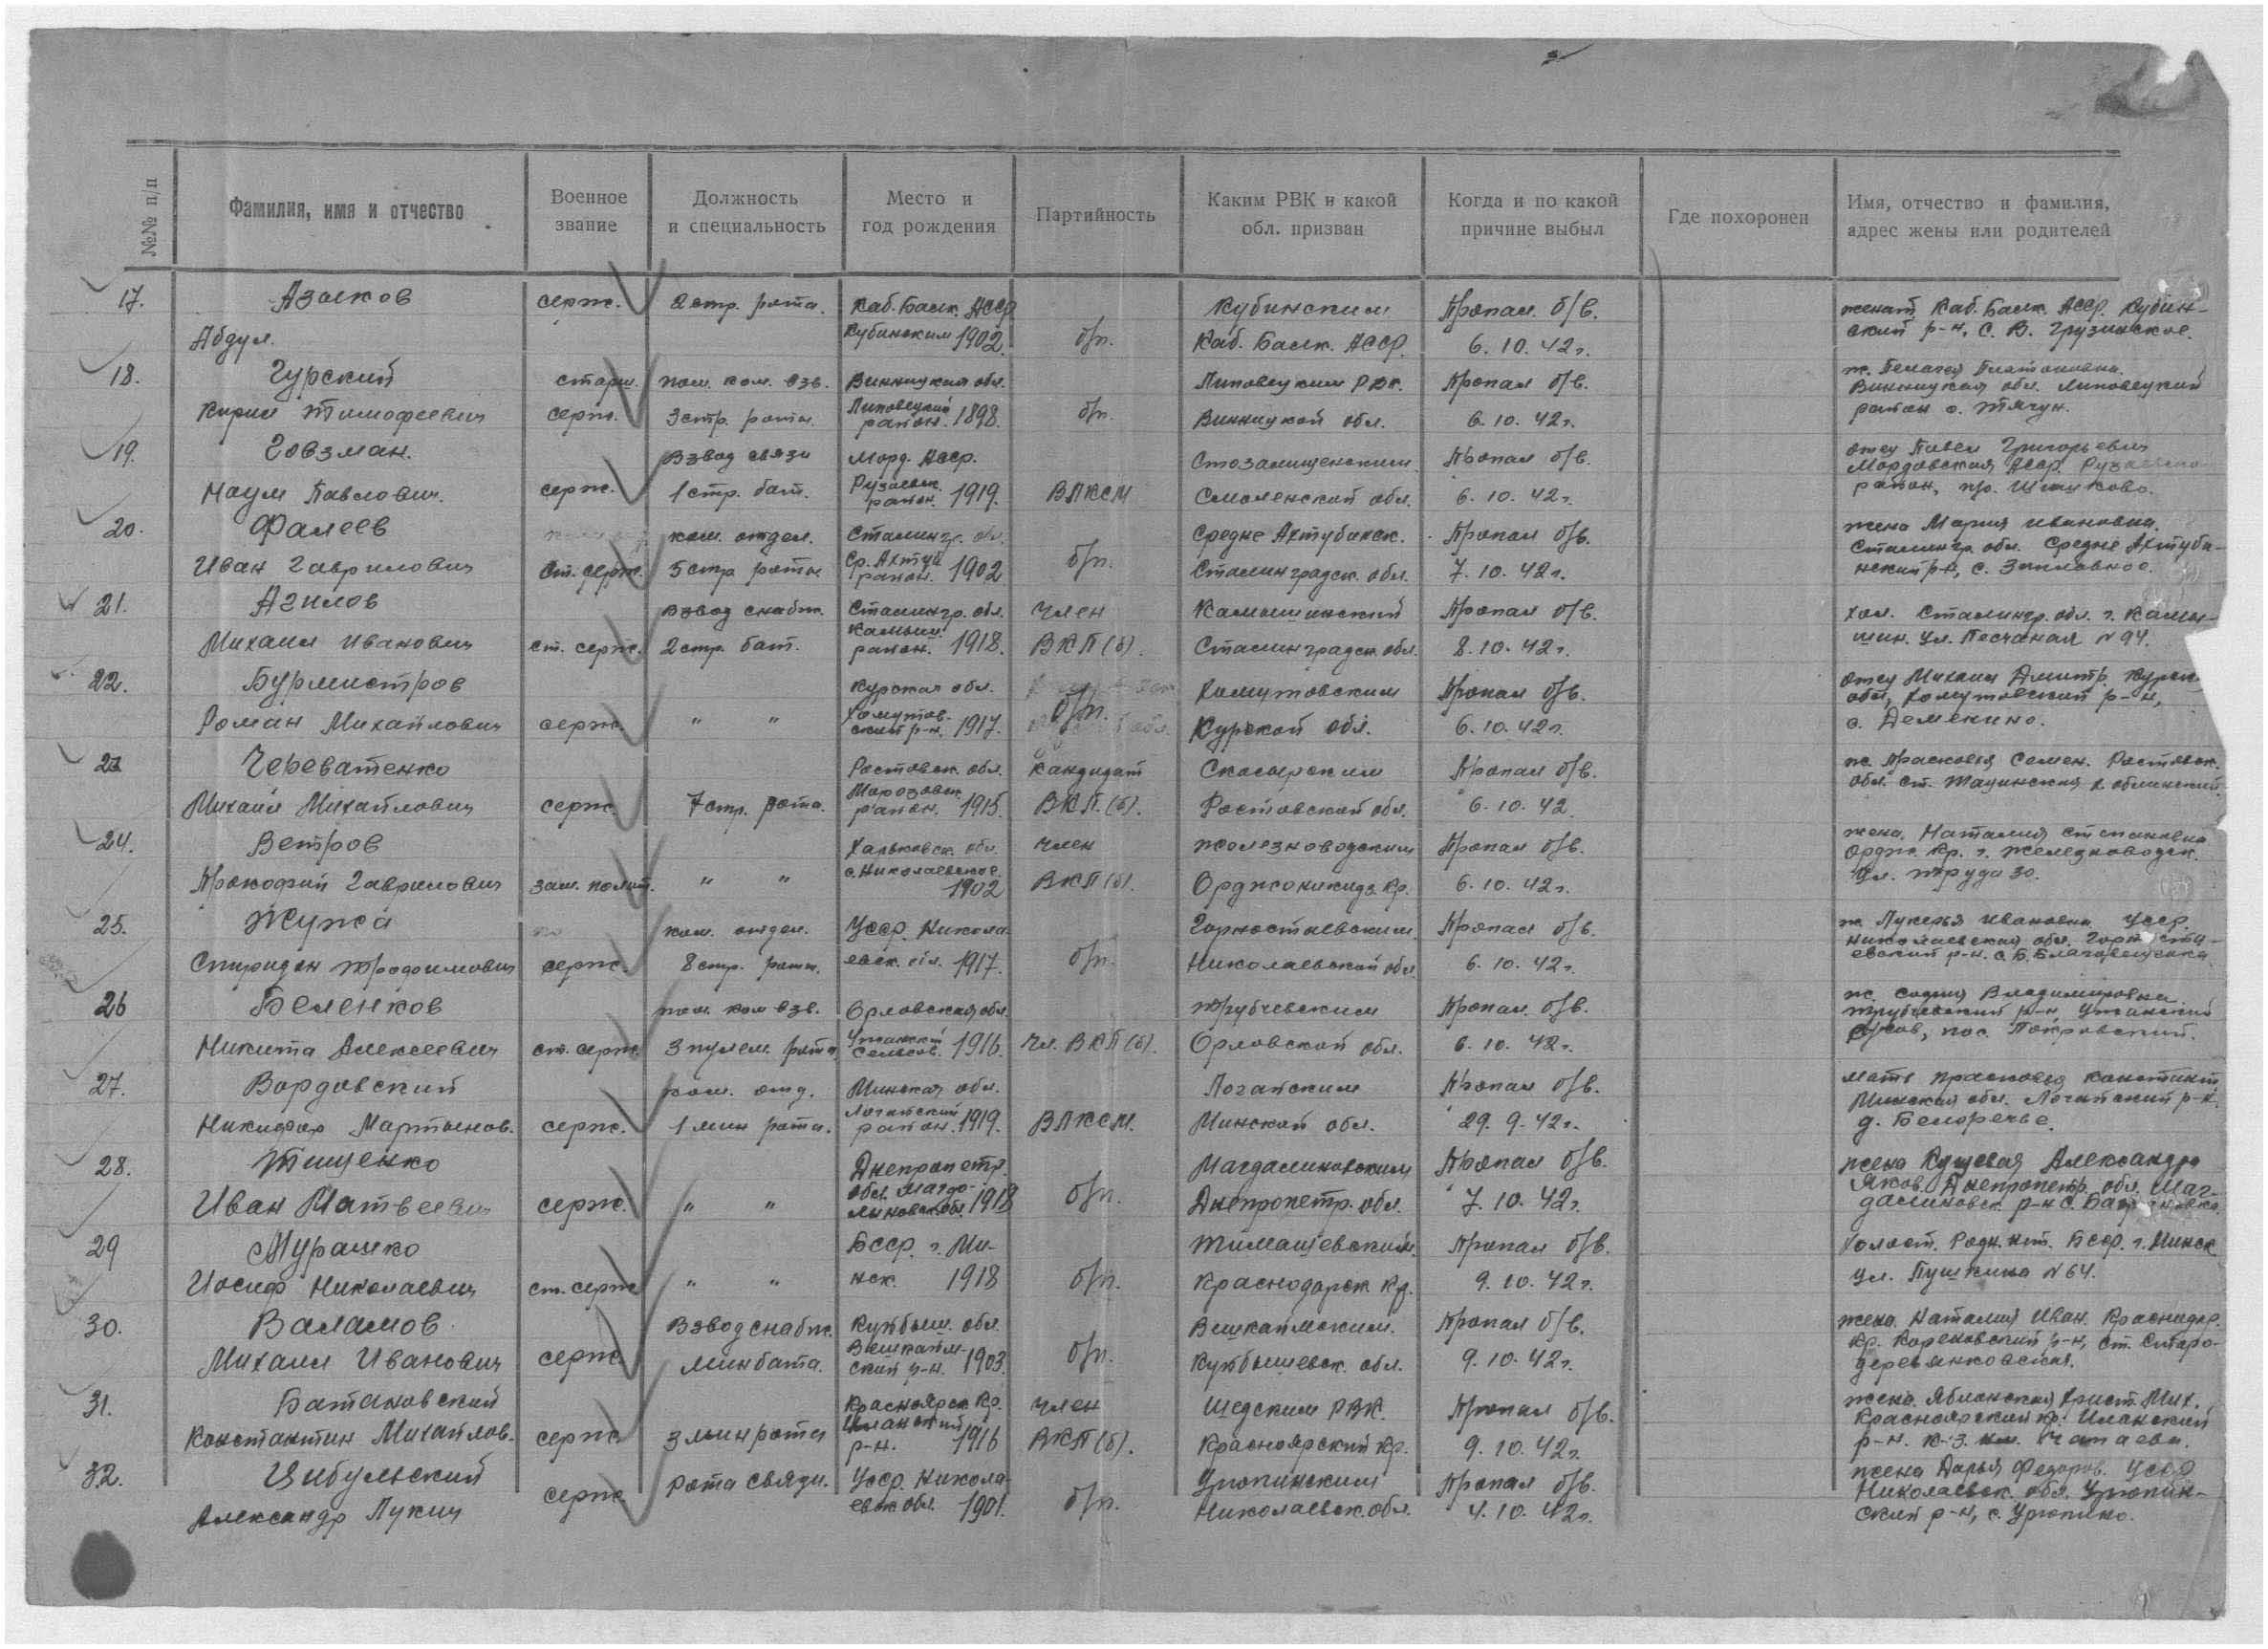 №№ п/п
Фамилия, имя и отчество
Военное звание
Должность и специальность
Место и год рождения
Партийность
Каким РВК и какой обл. призван
Когда и по какой причине выбыл
Где похоронен
Имя, отчество и фамилия, адрес жены или родителей
17. Азаков серж. 2 стр. рота. Каб. Балк. АССР Кубинским Пропал б/в. женат Каб. Балк. АССР. Кубин-
Абдул. Кубинским 1902. б/п. Каб. Балк. АССР. 6.10.42г. ский р-н, с. В. Грузинское.
18. Гурский старш. пом. ком. взв. Винницкая обл. Липовецким РВК. Пропал б/в. ж. Пелагея Платоновна.
Винницкая обл. Липовецкий
Кирил Тимофеевич серж. 3 стр. роты. Липовецкий район. 1898. б/п. Винницкой обл. 6.10.42г. район с. Тягун.
19. Говзман. Взвод связи Морд. АССР. Стозалищенским Пропал б/в. отец Павел Григорьевич
Мордовская АССР. Рузаевско
Наум Павлович. серж. 1 стр. бат. Рузаевск. район. 1919. ВЛКСМ Смоленской обл. 6.10.42г. район, пр.
20. Фалеев ком. отдел. Сталингр. обл. Средне Ахтубинск. Пропал б/в. жена Мария Ивановна.
Сталингр. обл. Средне Ахтуби-
Иван Гаврилович Ст. серж. 5 стр. роты. Ср. Ахтуб район. 1902 б/п. Сталинградск. обл. 7.10.42г. нский р-н, с. Заплавное.
21. Агилов взвод снабж. Сталингр. обл. член Камышинский Пропал б/в. хол. Сталингр. обл. г. Камы-
Михаил Иванович ст. серж. 2 стр. бат. Камыш. район. 1918. ВКП(б). Сталинградск. обл. 8.10.42г. шин. ул. Песчаная № 94.
22. Бурмистров Курская обл. Хомутовским Пропал б/в. отец Михаил Дмитр. Курск.
обл, Хомутовский р-н,
Роман Михайлович серж. " " Хомутов- ский р-н. 1917. б/п. Курской обл. 6.10.42г. с. Демекино.
23 Череватенко Ростовск. обл. Кандидат Скосырским Пропал б/в. ж. Прасковья Семен. Ростовск.
Михаил Михайлович серж. 7 стр. рота. Морозовск. район. 1915. ВКП.(б). Ростовской обл. 6.10.42 обл. ст. Тацинская х.
24. Ветров Харьковск. обл. член Железноводским Пропал б/в. жена. Наталия Степановна
Ордж. кр. г. Железноводск.
Прокофий Гаврилович зам. полит. " " с. Николаевское. 1902 ВКП(б). Орджоникидз. кр. 6.10.42г. ул. Труда 30.
25. Жужа ком. отдел. УССР. Никола- Горностаевским. Пропал б/в. ж. Лукерья Ивановна УССР.
Николаевская обл. Горностa-
Спиридон Трофимович серж. 8 стр. роты. евск. обл. 1917. б/п. Николаевской обл 6.10.42г. евский р-н. с. Б. Благовещенка
26 Беленков пом. ком взв. Орловская обл. Трубчевским Пропал. б/в. ж. София Владимировна
Трубчевский р-н,
Никита Алексеевич ст. серж. 3 пулем. рота сельсов. 1916. Чл. ВКП(б). Орловской обл. 6.10.42г. пос. Покровский.
27. Вордовский ком. отд. Минская обл. Логайским Пропал б/в. мать Прасковья Константин
Минская обл. Логайский р-н.
Никифор Мартынов. серж. 1 мин рота. Логайский район. 1919. ВЛКСМ. Минской обл. 29.9.42г. д. Белоречье.
28. Тищенко Днепропетр. Магдалиновским Пропал б/в. жена Куцевая Александра
Яков. Днепропетр. обл. Маг-
Иван Матвеевич серж. " " обл. Магда- линовск. 1918 б/п. Днепропетр. обл. 7.10.42г. далиновск. р-н с.
29 Мурашко БССР. г. Ми- Тимашевским. Пропал б/в. Холост. Родн. нет. БССР. г. Минск
Иосиф Николаевич ст. серж " " нск. 1918 б/п. Краснодарск кр. 9.10.42г. ул. Пушкина № 64.
30. Валамов. Взвод снабж. Куйбыш. обл. Вешкаймским. Пропал б/в. жена. Наталия Иван. Краснодар.
кр. Кореновский р-н, ст. Старо-
Михаил Иванович серж. минбата. Вешкайм- ский р-н. 1903. б/п. Куйбышевск. обл. 9.10.42г. деревянковская.
31. Батановский Красноярск. кр. член РВК. Пропал б/в. жена. Христ. Мих.
Красноярский кр. Иланский
Константин Михайлов. серж. 3 мин рота Иланский р-н. 1916 ВКП(б). Красноярский кр. 9.10.42г. р-н. к-з. им. Чапаева.
32. Цибульский серж. Рота связи. УССР. Никола- Урюпинским Пропал б/в. жена Дарья Федоров. УССР
Николаевск. обл. Урюпин-
Александр Лукич евск обл. 1901. б/п. Николаевск. обл. 4.10.42г. ский р-н, с. Урюпино.